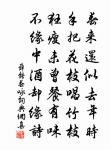 春來還似去年時
手把花枝唱竹枝
狂瘦未曾餐有味
不緣中酒卻緣詩
薛能春咏詞典網集